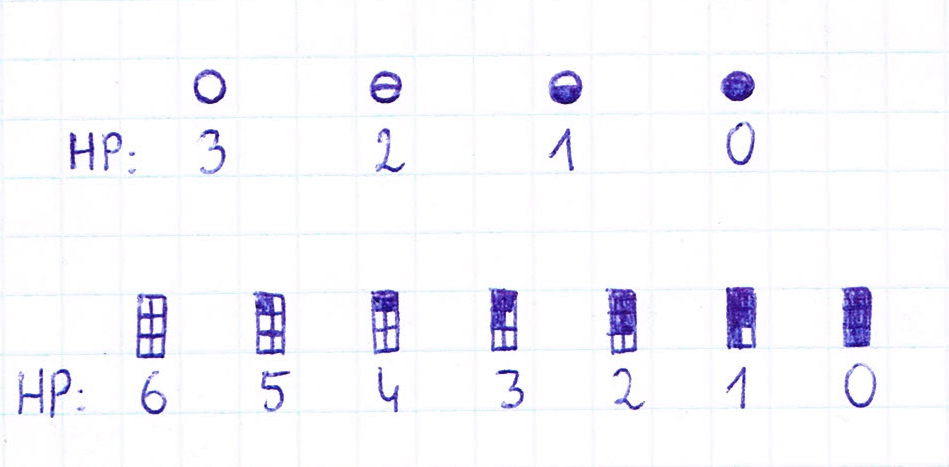 HP: 3 2 1 0
HP: 6 5 4 3 2 1 0